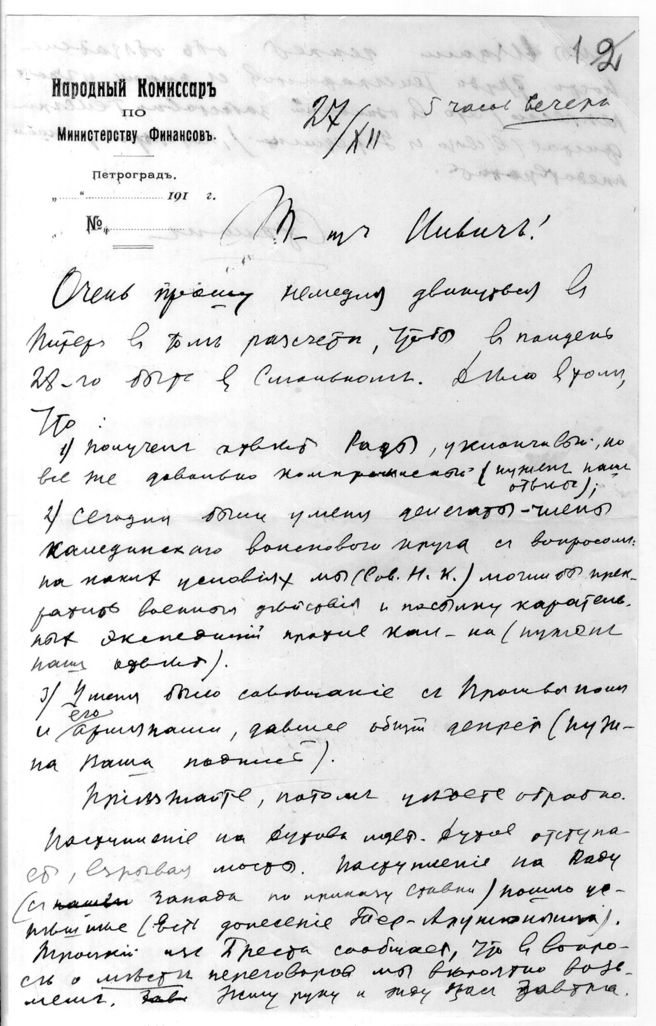 12
Народный Комиссаръ
по
Министерству Финансовъ.
Петроградъ.
„ “ 191 г.
№
27/XII
5 часов вечера
Т-щъ Ильичъ!
Очень прошу немедля двинуться в
Питер в том разсчете, чтобы в полдень
28-го быть в Смольном. Дело в том,
что:
1) получен ответ Рады, уклончивый, но
все же довольно компромиссный (нужен наш
ответ);
2) Сегодня были у меня делегаты-члены
калединскаго войскового круга с вопросом:
на каких условіях мы (Сов. Н. К.) могли бы прек-
ратить военныя действія и посылку каратель-
ных экспедицій против Кал-на (нужен
наш ответ).
3) У меня было совещаніе с Прошьяном
и его армянами, давшее общій декрет (нуж-
на Ваша подпись).
Пріезжайте, потом уедете обратно.
Наступленіе на Дутова идет. Дутов отступа-
ет, взрывая мосты. Наступленіе на Раду
(с запада по приказу ставки) пошло ус-
пешнее (есть донесеніе Тер-Арутюньянца).
Троцкий из Бреста сообщает, что в вопро-
се о месте переговоров мы вероятно возь-
мем. Жму руку и жду Вас завтра.